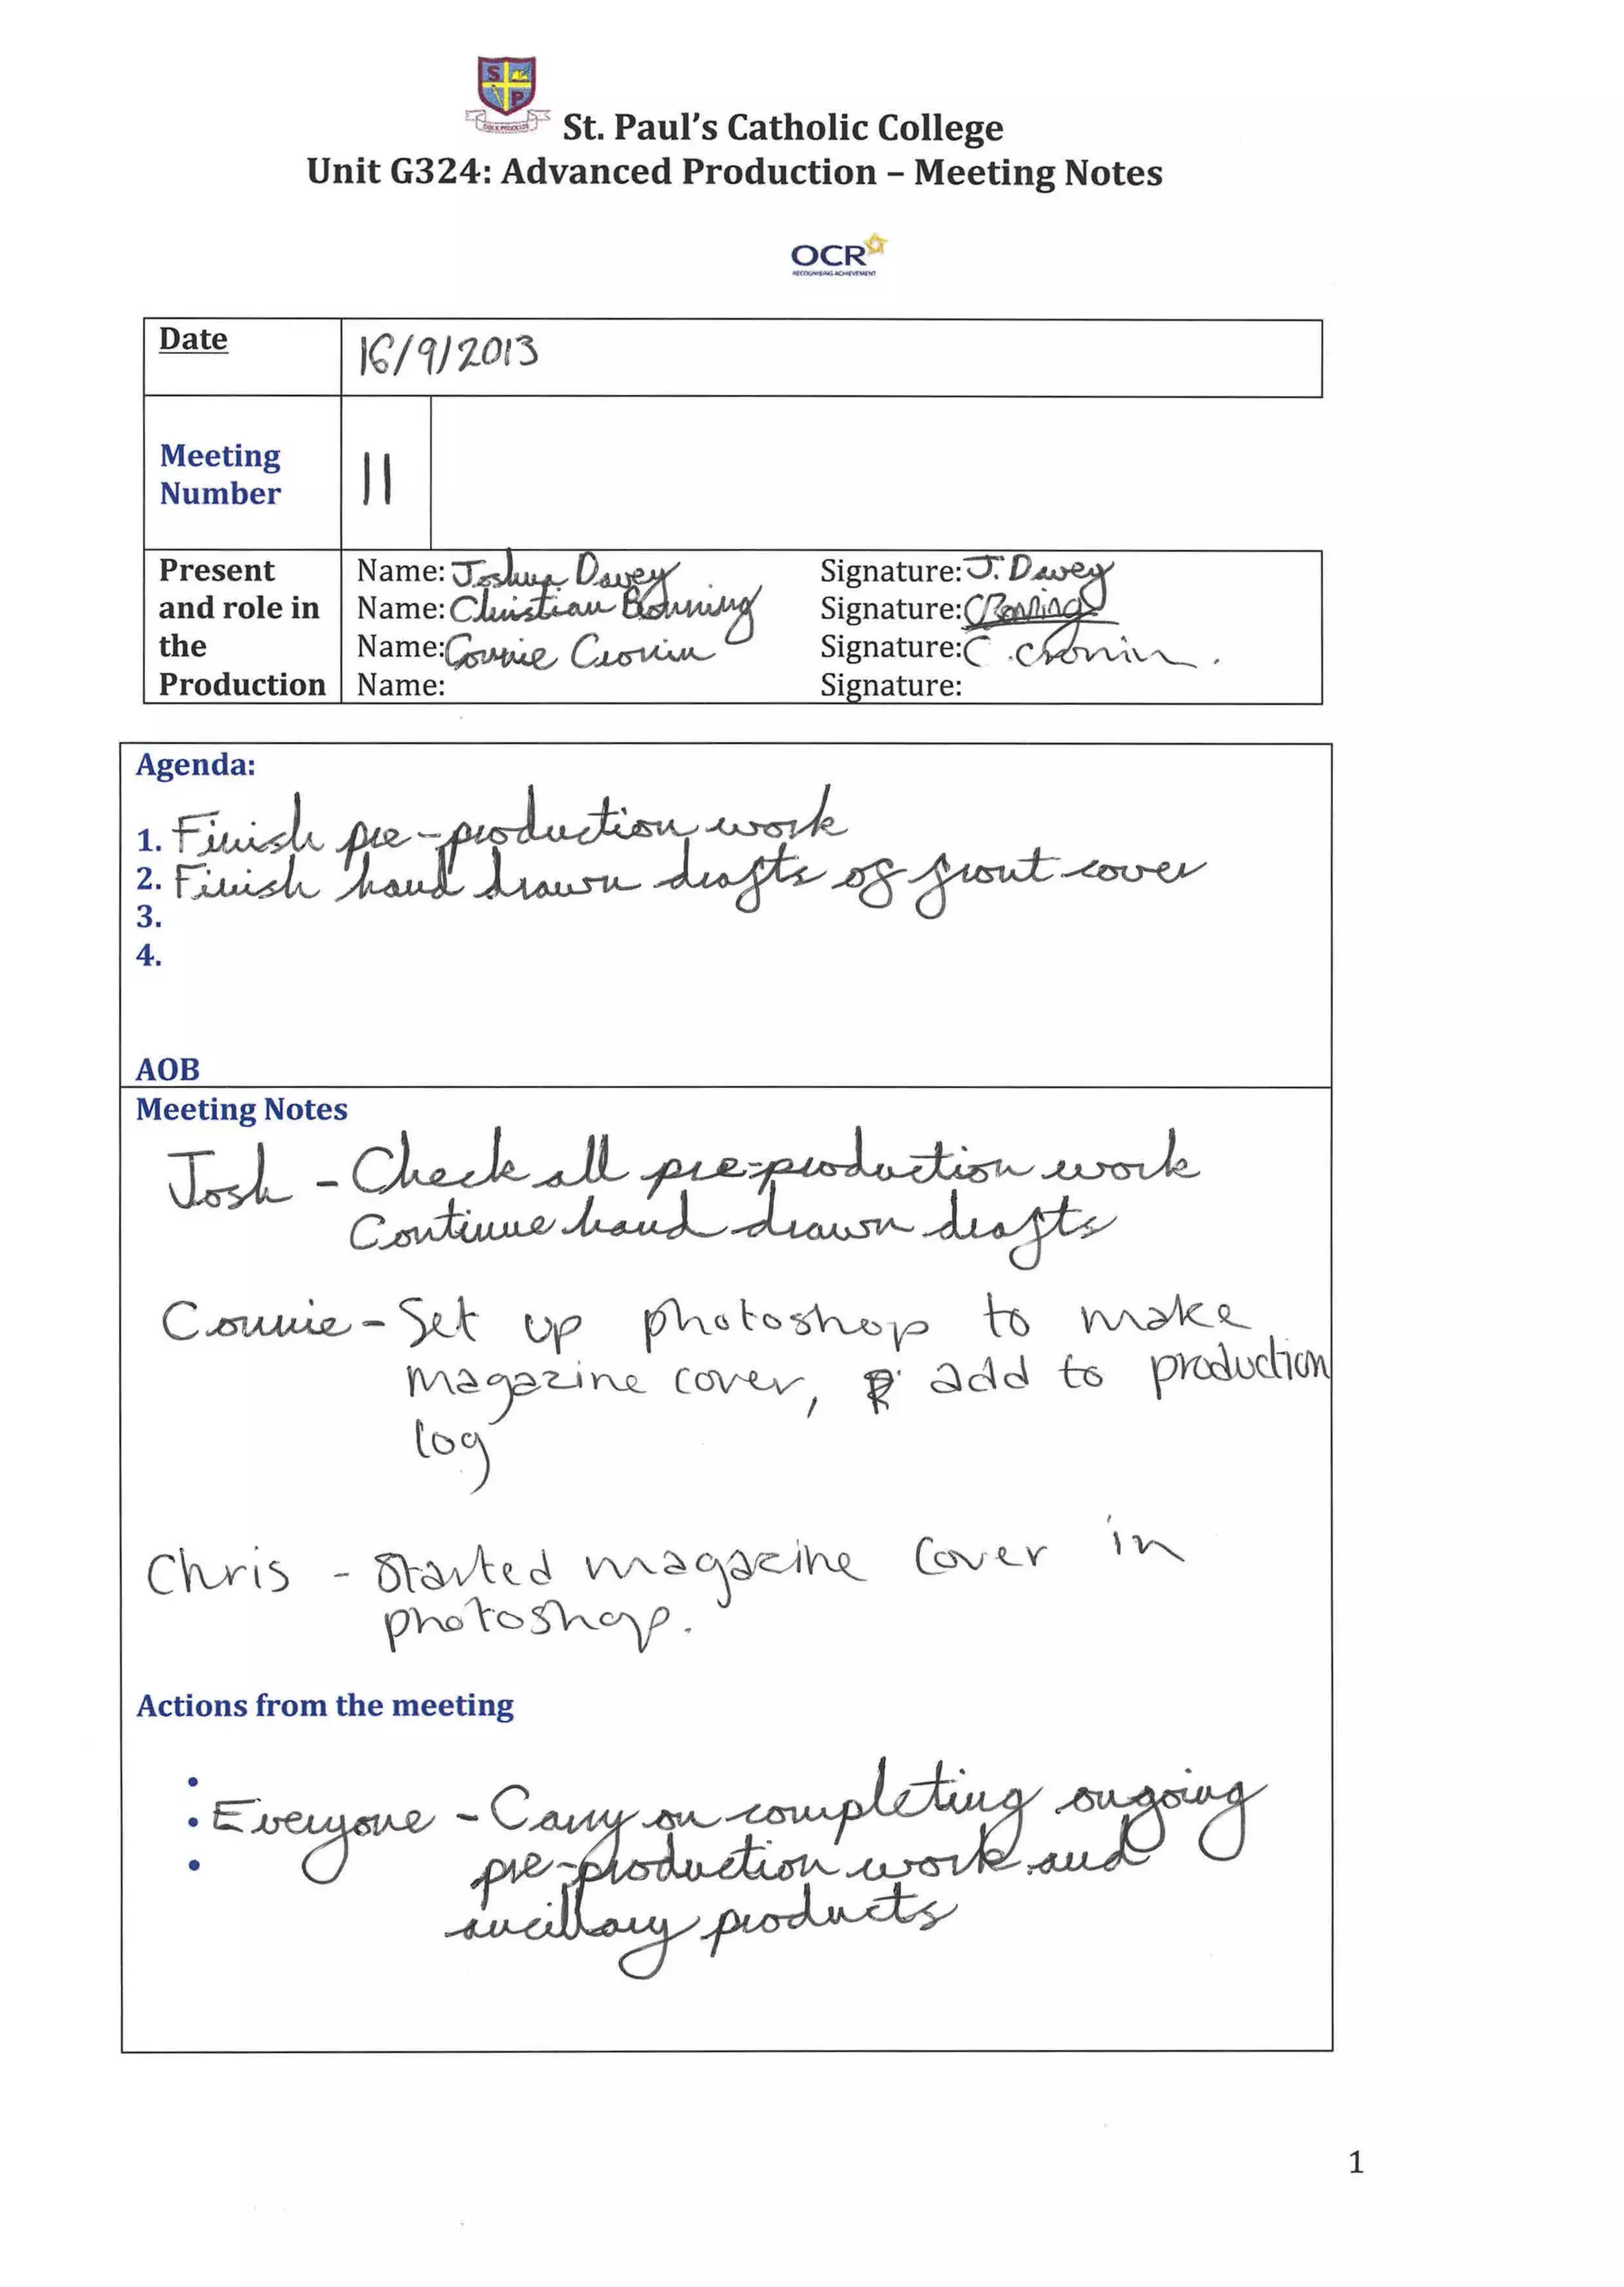 S P
St. Paul's Catholic College
Unit G324: Advanced Production – Meeting Notes
OCR
RECOGNISING ACHIEVEMENT
Date 16/9/2013
Meeting
Number 11
Present Name: Joshua Davey Signature: J. Davey
and role in Name: Christian Signature:
the Name: Connie Cronin Signature: C. Cronin.
Production Name: Signature:
Agenda:
1. Finish pre-production work
2. Finish hand drawn drafts of front cover
3.
4.
AOB
Meeting Notes
Josh - Check all pre-production work
Continue hand drawn drafts
Connie - Set up photoshop to make
magazine cover, add to production
log
Chris - Started magazine cover in
photoshop.
Actions from the meeting
•
• Everyone - Carry on completing ongoing
• pre-production work and
ancillary products
1